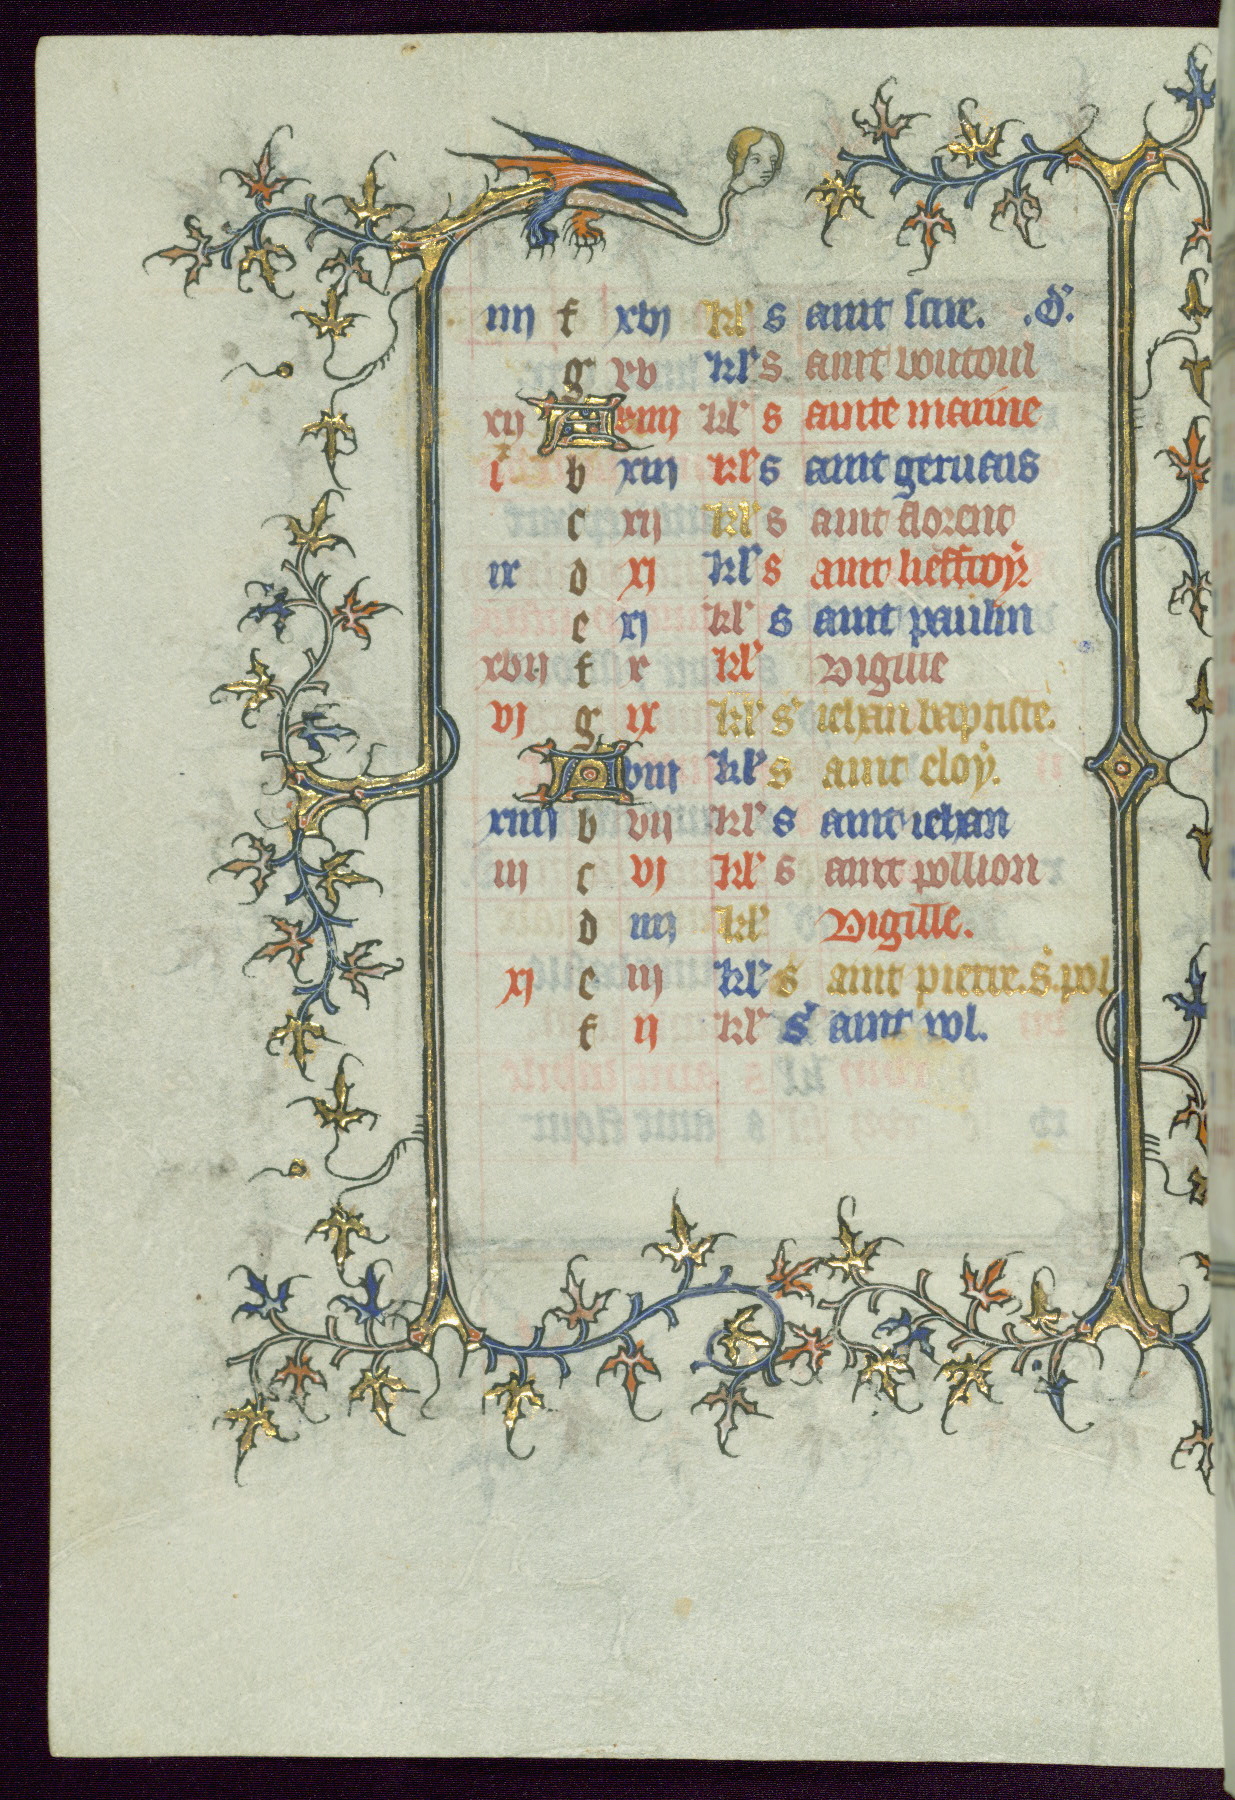 iiij f xvj kl' s aint . .d'.
g xv kl' s aint voutoul
xij A xiiij kl' s ainte marine
i b xiij kl' s aint geruais
c xij kl' s aint florent
ix d xj kl' s aint lieffroy
e xj kl' s aint paulin
xvij f x kl' Vigille
vj g ix kl' s' iehan baptiste.
A viij kl' s aint eloy.
xiiij b vij kl' s aint iehan
iij c vj kl' s aint pollion
d iiij kl' Vigille.
xj e iij kl' s aint pierre. s. pol
f ij kl' s' aint